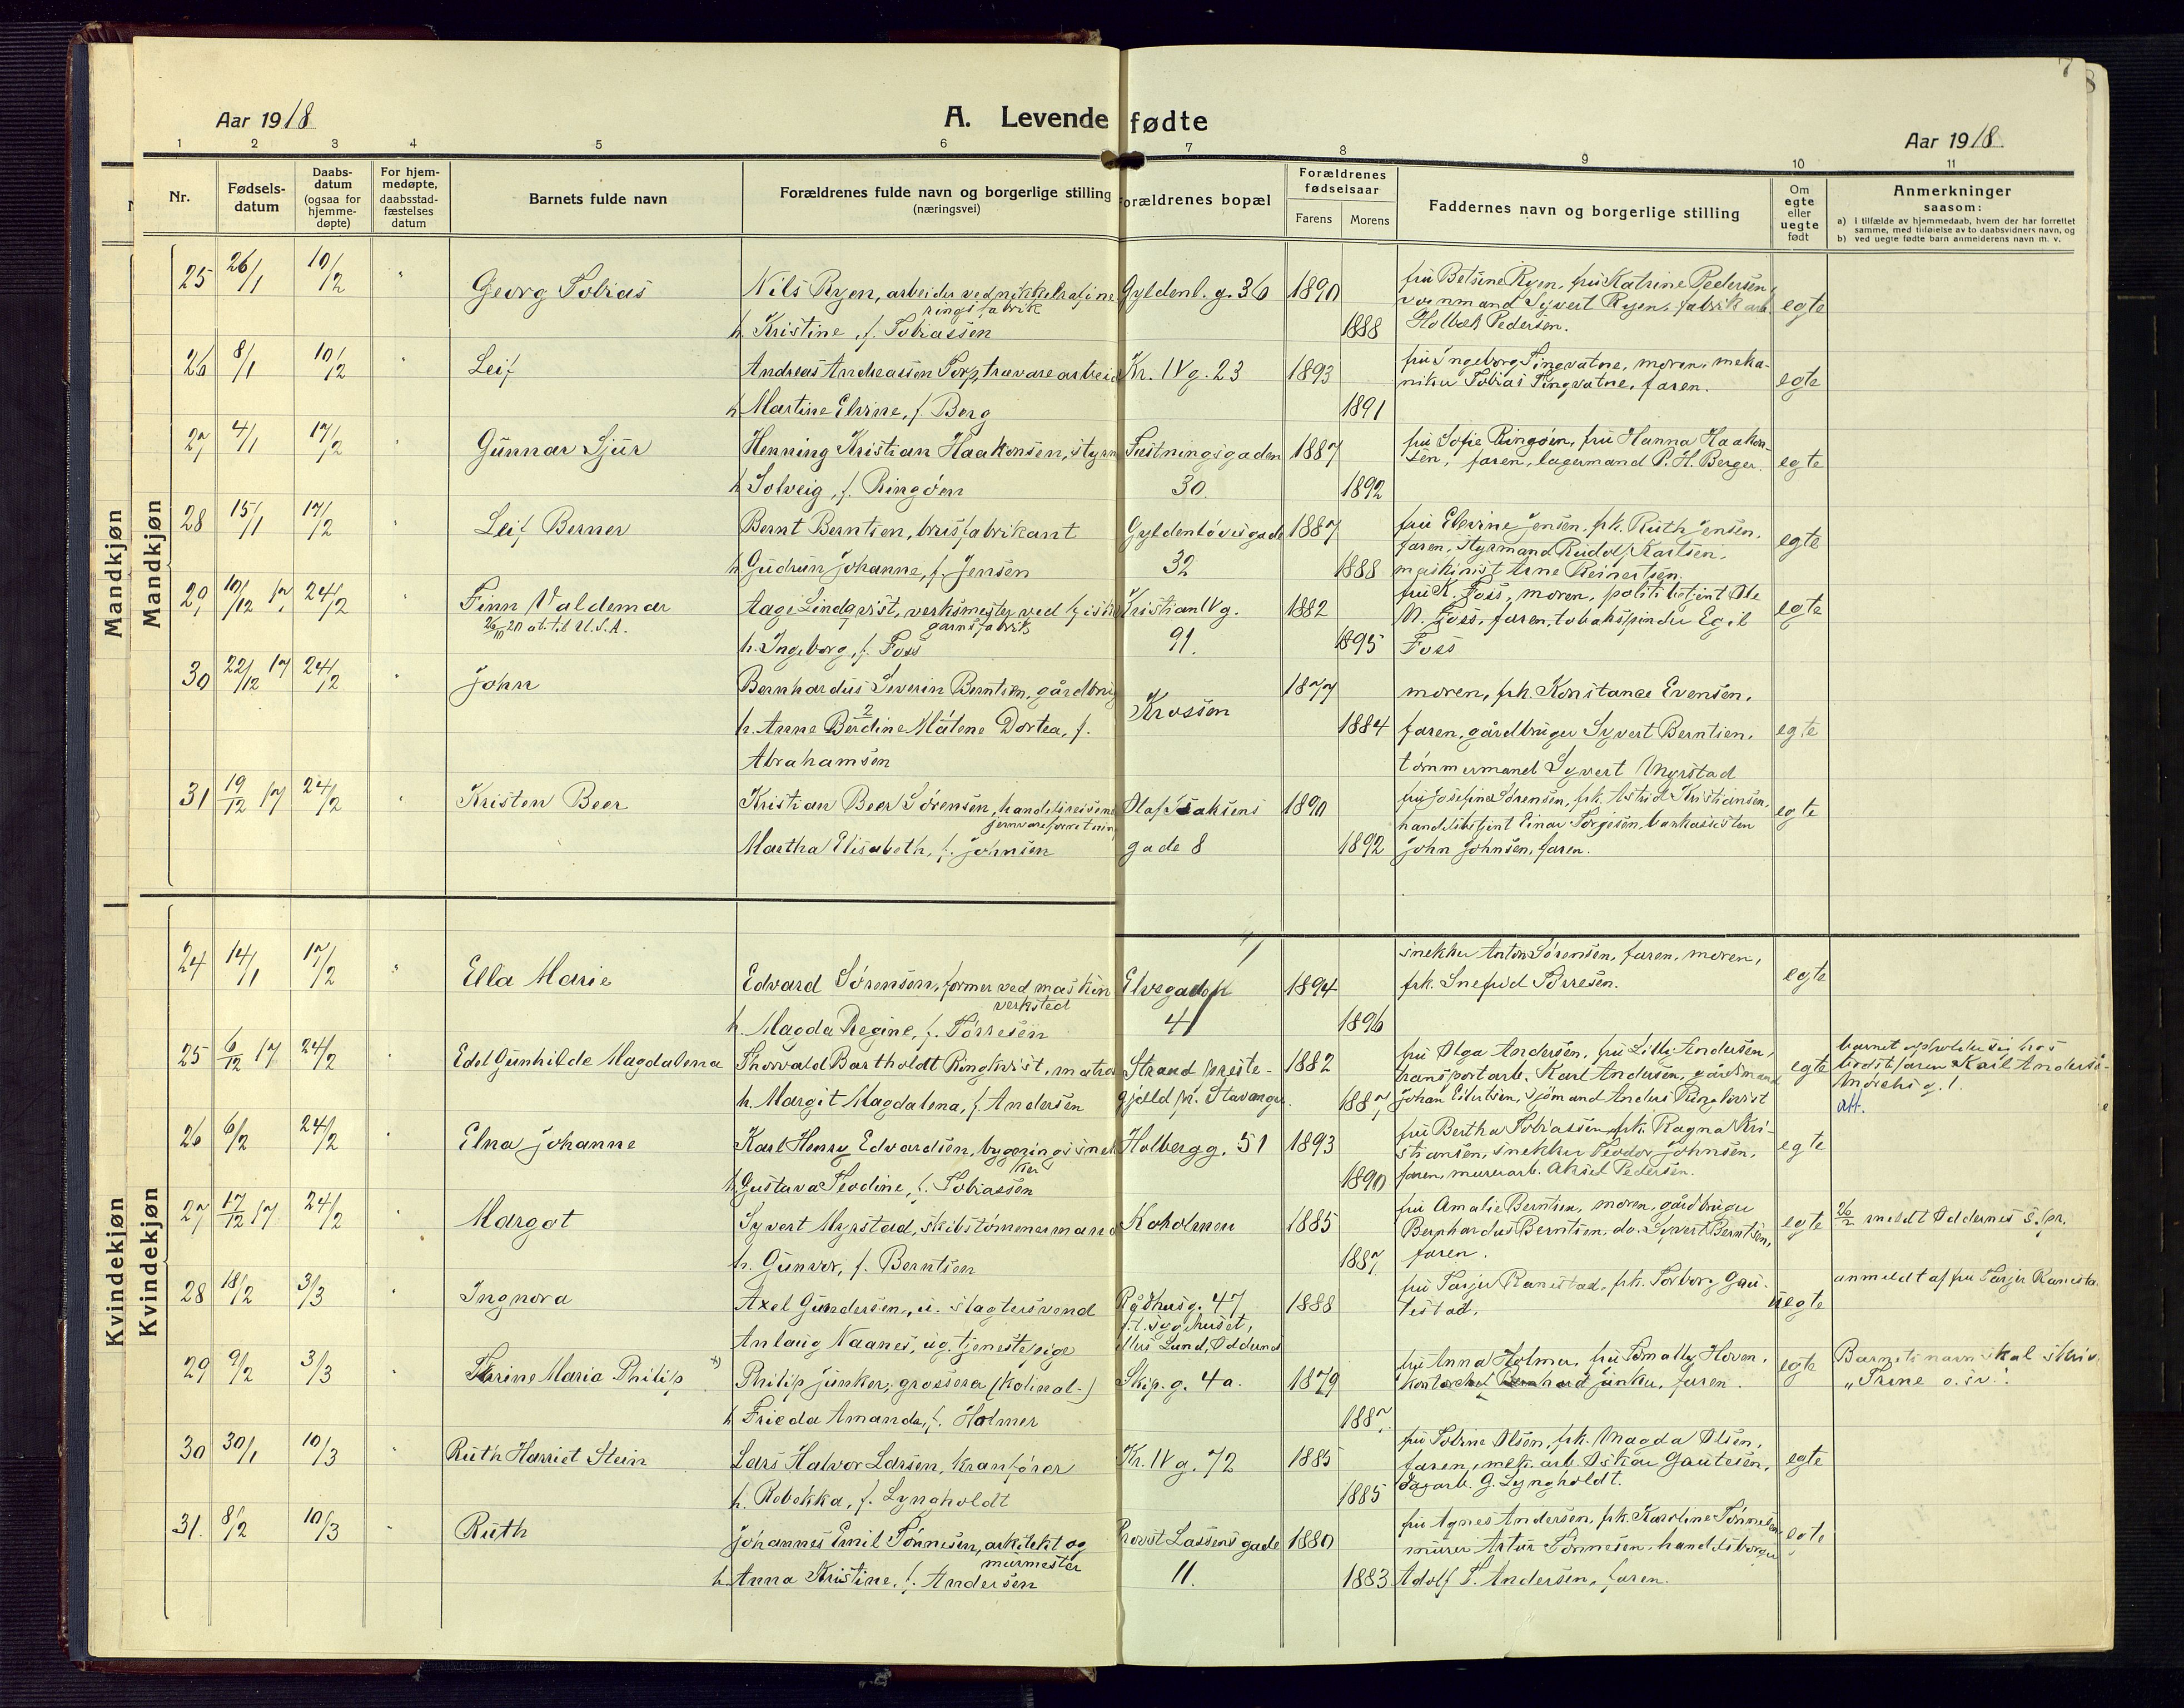 7
8
Aar 1918
A. Levende fødte
Aar 1918
1 2 3 4 5 6 7 8 9 10 11
Nr.
Fødsels-
datum
Daabs-
datum
(ogsaa for
hjemme-
døpte)
For hjem-
medøpte,
daabsstad-
fæstelses
datum
Barnets fulde navn
Forældrenes fulde navn og borgerlige stilling
(næringsvei)
orældrenes bopæl
Forældrenes
fødselsaar
Farens Morens
Faddernes navn og borgerlige stilling
Om
egte
eller
uegte
født
Anmerkninger
saasom:
a) i tilfælde av hjemmedaab, hvem der har forrettet
samme, med tilføielse av to daabsvidners navn, og
b) ved uegte fødte barn anmelderens navn m. v.
Mandkjøn
Mandkjøn
25 26/1 10/2 " Georg Tobias Nils Ryen, arbeider ved nikkelrafine Gyldenl. g. 36 1890 fru Betsine Ryen, fru Katrine Pedersen, egte
ringsfabrik vognmand Syvert Ryen, fabrikarb.
h. Kristine, f. Tobiassen 1888 Holbæk Pedersen.
26 8/1 10/2 " Leif Andreas Andreassen Torp, trævarearbeid Kr. IV g. 23 1893 fru Ingeborg Tingvatne, moren, meka-
niker Tobias Tingvatne, faren. egte
h. Martine Elvine, f. Berg 1891
27 4/1 17/2 " Gunnar Sjur Henning Kristian Haakonsen, styrm Festningsgaden 1887 fru Sofie Ringöen, fru Hanna Haakon-
sen, faren, lagermand P. H. Berger. egte
h. Solveig, f. Ringöen 30. 1892
28 15/1 17/2 " Leif Berner Bernt Berntsen, brusfabrikant Gyldenløvesgade 1887 fru Elevine Jensen, frk. Ruth Jensen, egte
faren, styrmand Rudolf Karlsen,
h. Gudrun Johanne, f. Jensen 32 1888 maskinist Arne Reinertsen.
29 10/12 17 24/2 Finn Valdemar Aage Lindqvist, verksmester ved fiske Kristian IV g. 1882 fru K. Foss, moren, politibetjent Ole egte
26/10 20 at. til U.S.A. garnsfabrik N. Foss, faren, tobakspinder Egil
h. Ingeborg, f. Foss 91. 1895 Foss
30 22/12 17 24/2 " John Bernhardus Severin Berntsen, gårdbru Krossen 1877 moren, frk. Konstance Evensen,
h. Anne Berdine Målene Dortea, f. 1884 faren, gårdbruger Syvert Berntsen, egte
Abrahamsen tömmermand Syvert Myrstad
31 19/12 17 24/2 " Kristen Beer Kristian Beer Sörensen, handelsreisen Olaf Isaksens 1890 fru Josefine Sörensen, frk. Astrid Kristiansen, egte
jernvareforretning handelsbetjent Einar Torgesen, bankassisten
Martha Elisabeth, f. Johnsen gade 8 1892 John Johnsen, faren.
Kvindekjøn
Kvindekjøn
24 14/1 17/2 " Ella Marie Edvard Sörensen, former ved maskin Elvegaden 1894 snekker Anton Sörensen, faren, moren, egte
verksted frk. Snefrid Törresen.
h. Magda Regine, f. Törresen 41 1896
25 6/12 17 24/2 " Edel Gunhilde Magdalena Thorvald Bartholdt Ringkvist, matro Strand preste- 1882 fru Olga Andersen, fru Lilly Andersen, egte barnet opholder sig hos
transportarb. Karl Andersen, gårdmand bedstefaren Karl Anders
h. Margit Magdalena, f. Andersen gjæld pr. Stavanger. 1887 Johan Eilertsen, sjömand Anders Ringkvist att.
26 6/2 24/2 " Elna Johanne Karl Henry Edvardsen, bygningssnek Holbergg. 51 1893 fru Bertha Tobiassen, frk. Ragna Kri- egte
ker stiansen, snekker Teodor Johnsen,
h. Gustava Teodine, f. Tobiassen 1890 faren, murerarb. Aksel Pedersen.
27 17/12 17 24/2 " Margot Syvert Myrstad, skibstömmermand Koholmen 1885 fru Amalie Berntsen, moren, gårdbruger egte 26/2 meldt Oddernes s.pr.
Bernhardus Berntsen, do. Syvert Berntsen,
h. Gunvor, f. Berntsen 1887 faren.
28 18/2 3/3 " Ingnora Axel Gundersen, u. slagtersvend Rådhusg. 47 1888 fru Tarjer Ranestad, frk. Torborg Gau- uegte anmeldt af fru Tarjer Ranesta
testad.
Anlaug Naanes, ug. tjenestepige
29 9/2 3/3 " Thrine Maria Philip x) Philip Junker, grosserer (kolonial-) Skip. g. 4a. 1879 fru Anna Holmer, fru Tomally Hoven, egte Barnets navn skal skriv
faren. „Trine o.s.v."
h. Frieda Amanda, f. Holmer 1887.
30 30/1 10/3 " Ruth Harriet Stein Lars Halvor Larsen, kranförer Kr. IV g. 72 1885 fru Tobine Olsen, frk. Magda Olsen, egte
faren, mek. arb. Oskar Gautesen,
h. Rebekka, f. Lyngholdt 1885 Sagarb. G. Lyngholdt.
31. 8/2 10/3 " Ruth Johannes Emil Tönnesen, arkitekt og Provst Lassens gade 1880 fru Agnes Andersen, frk. Karoline Tönnesen egte
murmester murer Artur Tönnesen, handelsborger
h. Anna Kristine, f. Andersen 11. 1883 Adolf T. Andersen, faren.